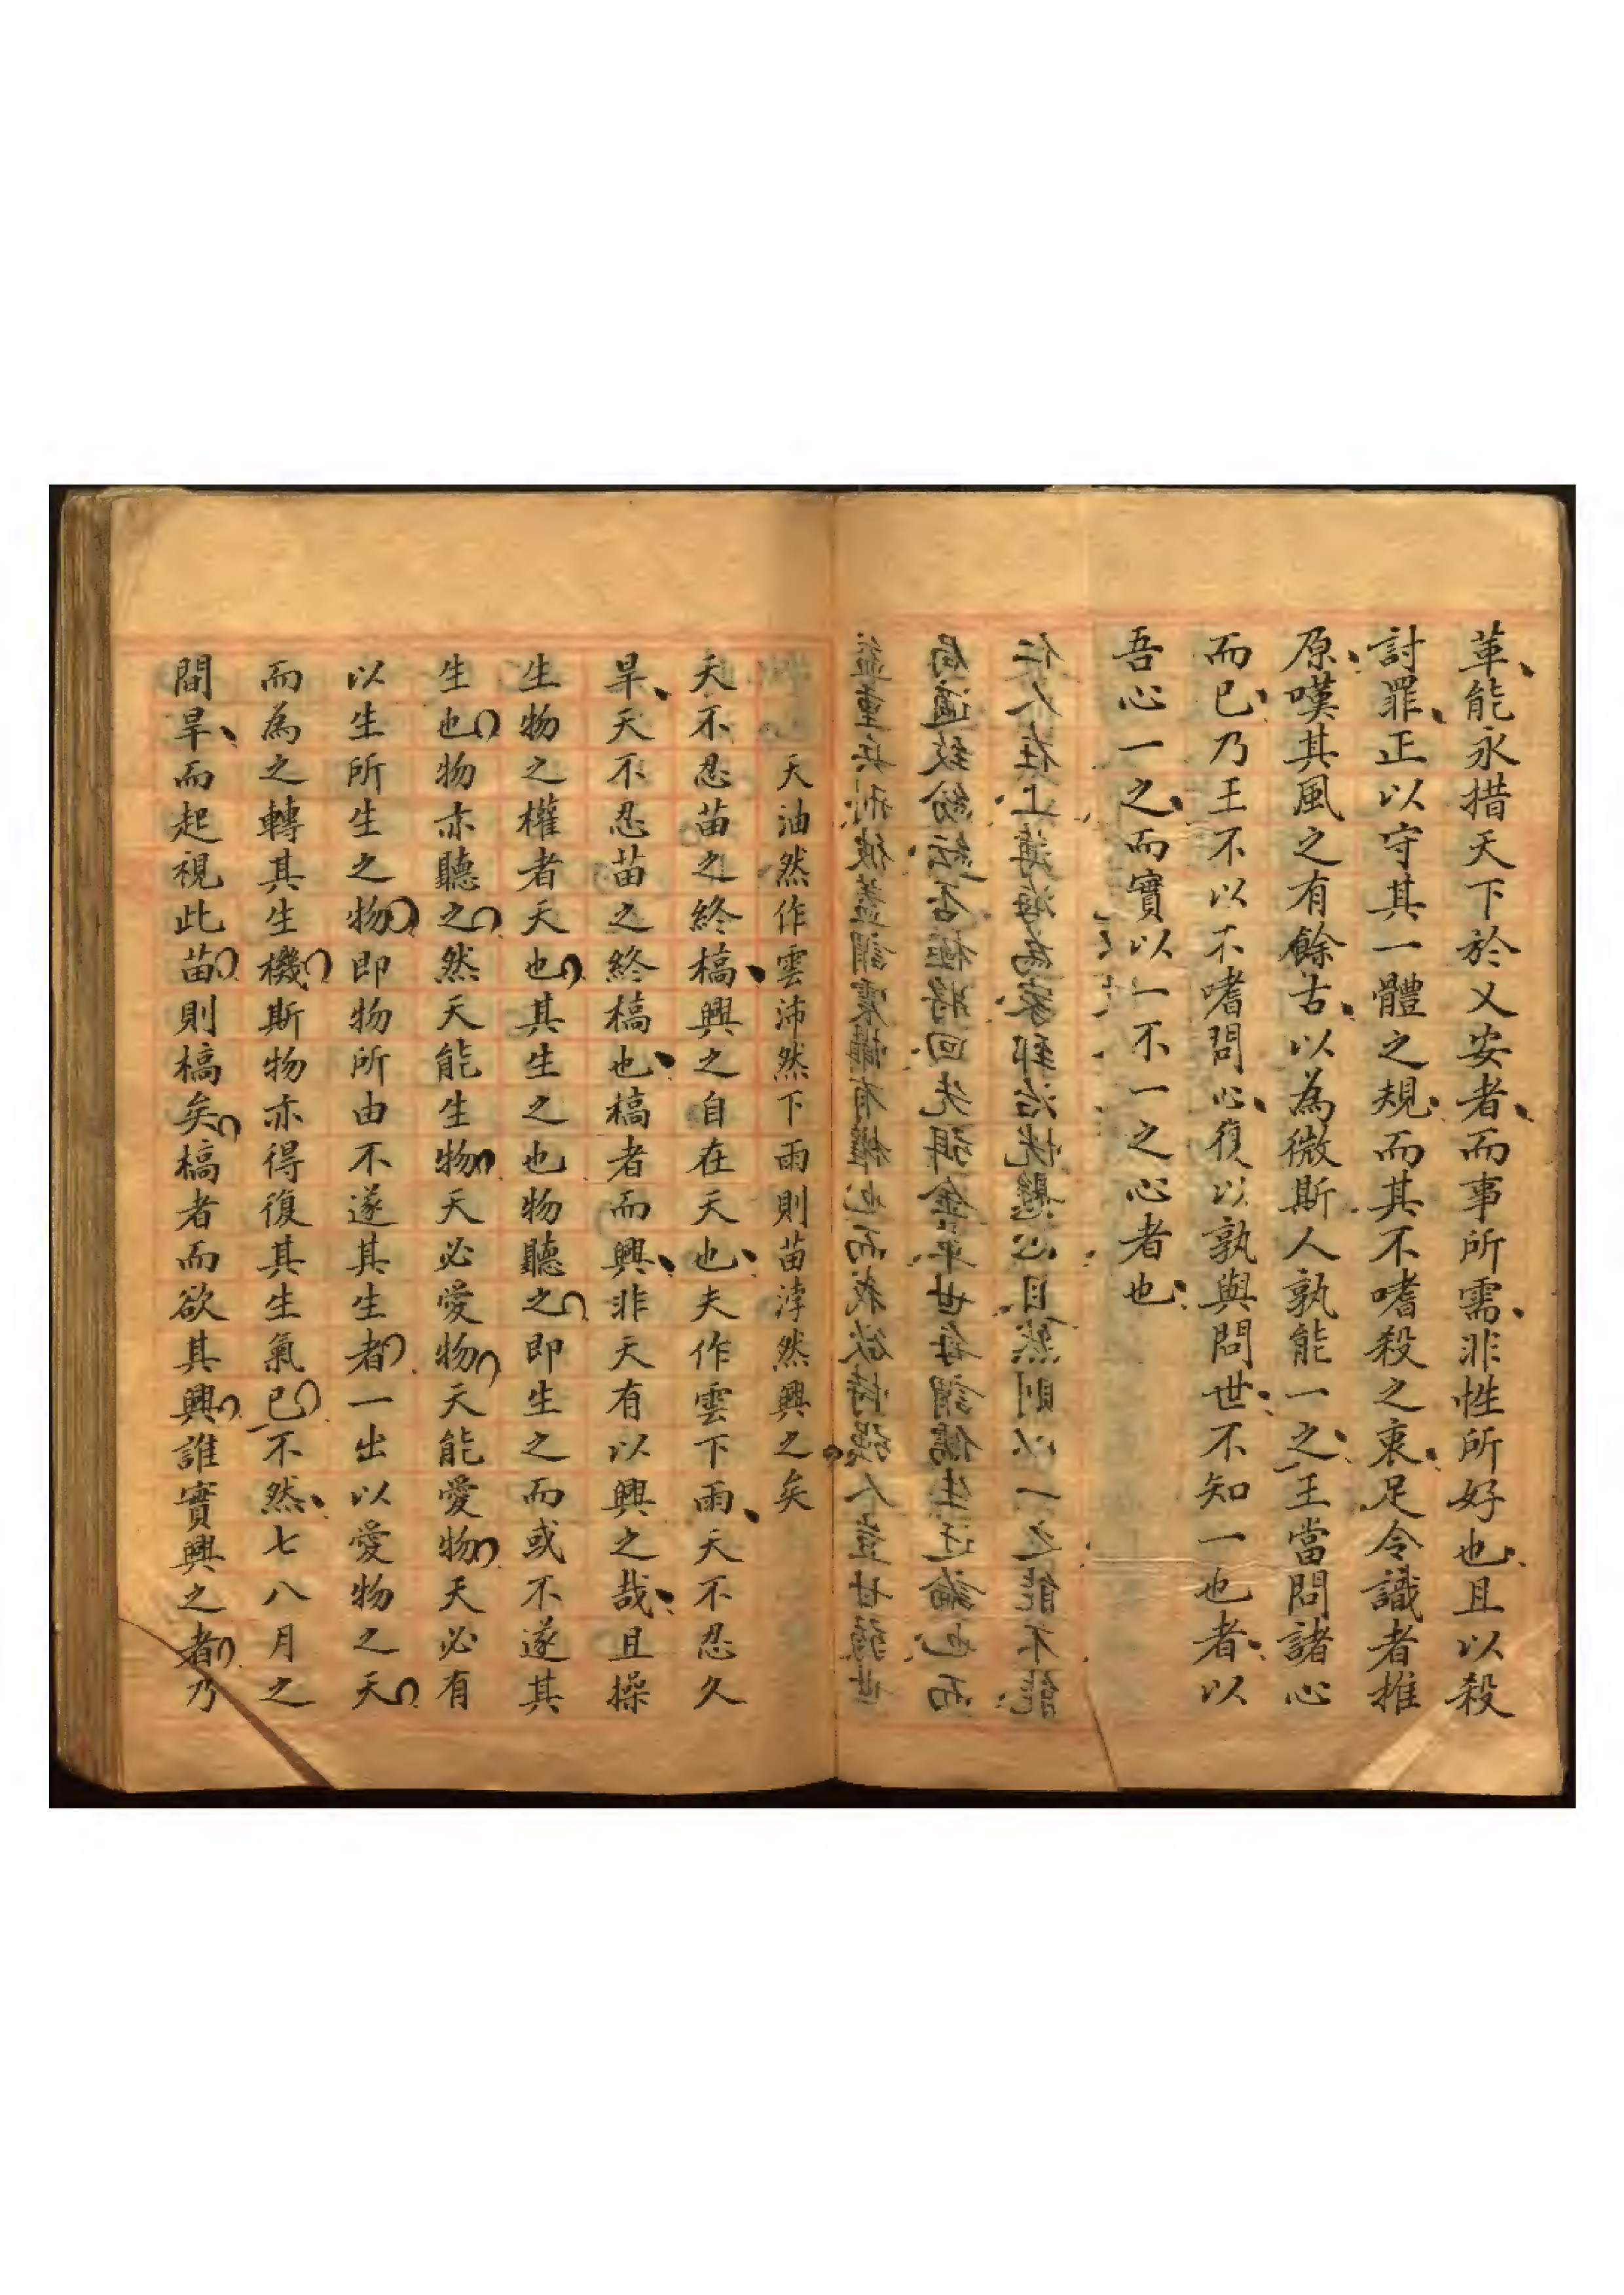 革能永措天下於乂安者而事所需非性所好也且以殺
討罪正以守其一體之規而其不嗜殺之衷足令識者推
原嘆其風之有餘古以為微斯人孰能一之王當問諸心
而已乃王不以不嗜問心復以孰與問世不知一也者以
吾心一之而實以一不一之心者也
天油然作雲沛然下雨則苗浡然興之矣
天不忍苗之終槁興之自在天也夫作雲下雨天不忍久
旱天不忍苗之終槁也槁者而興非天有以興之哉且操
生物之權者天也其生之也物聽之即生之而或不遂其
生也物亦聽之然天能生物天必愛物天能愛物天必有
以生所生之物即物所由不遂其生者一出以愛物之天
而為之轉其生機斯物亦得復其生氣已不然七八月之
間旱而起視此苗則槁矣槁者而欲其興誰實興之者乃